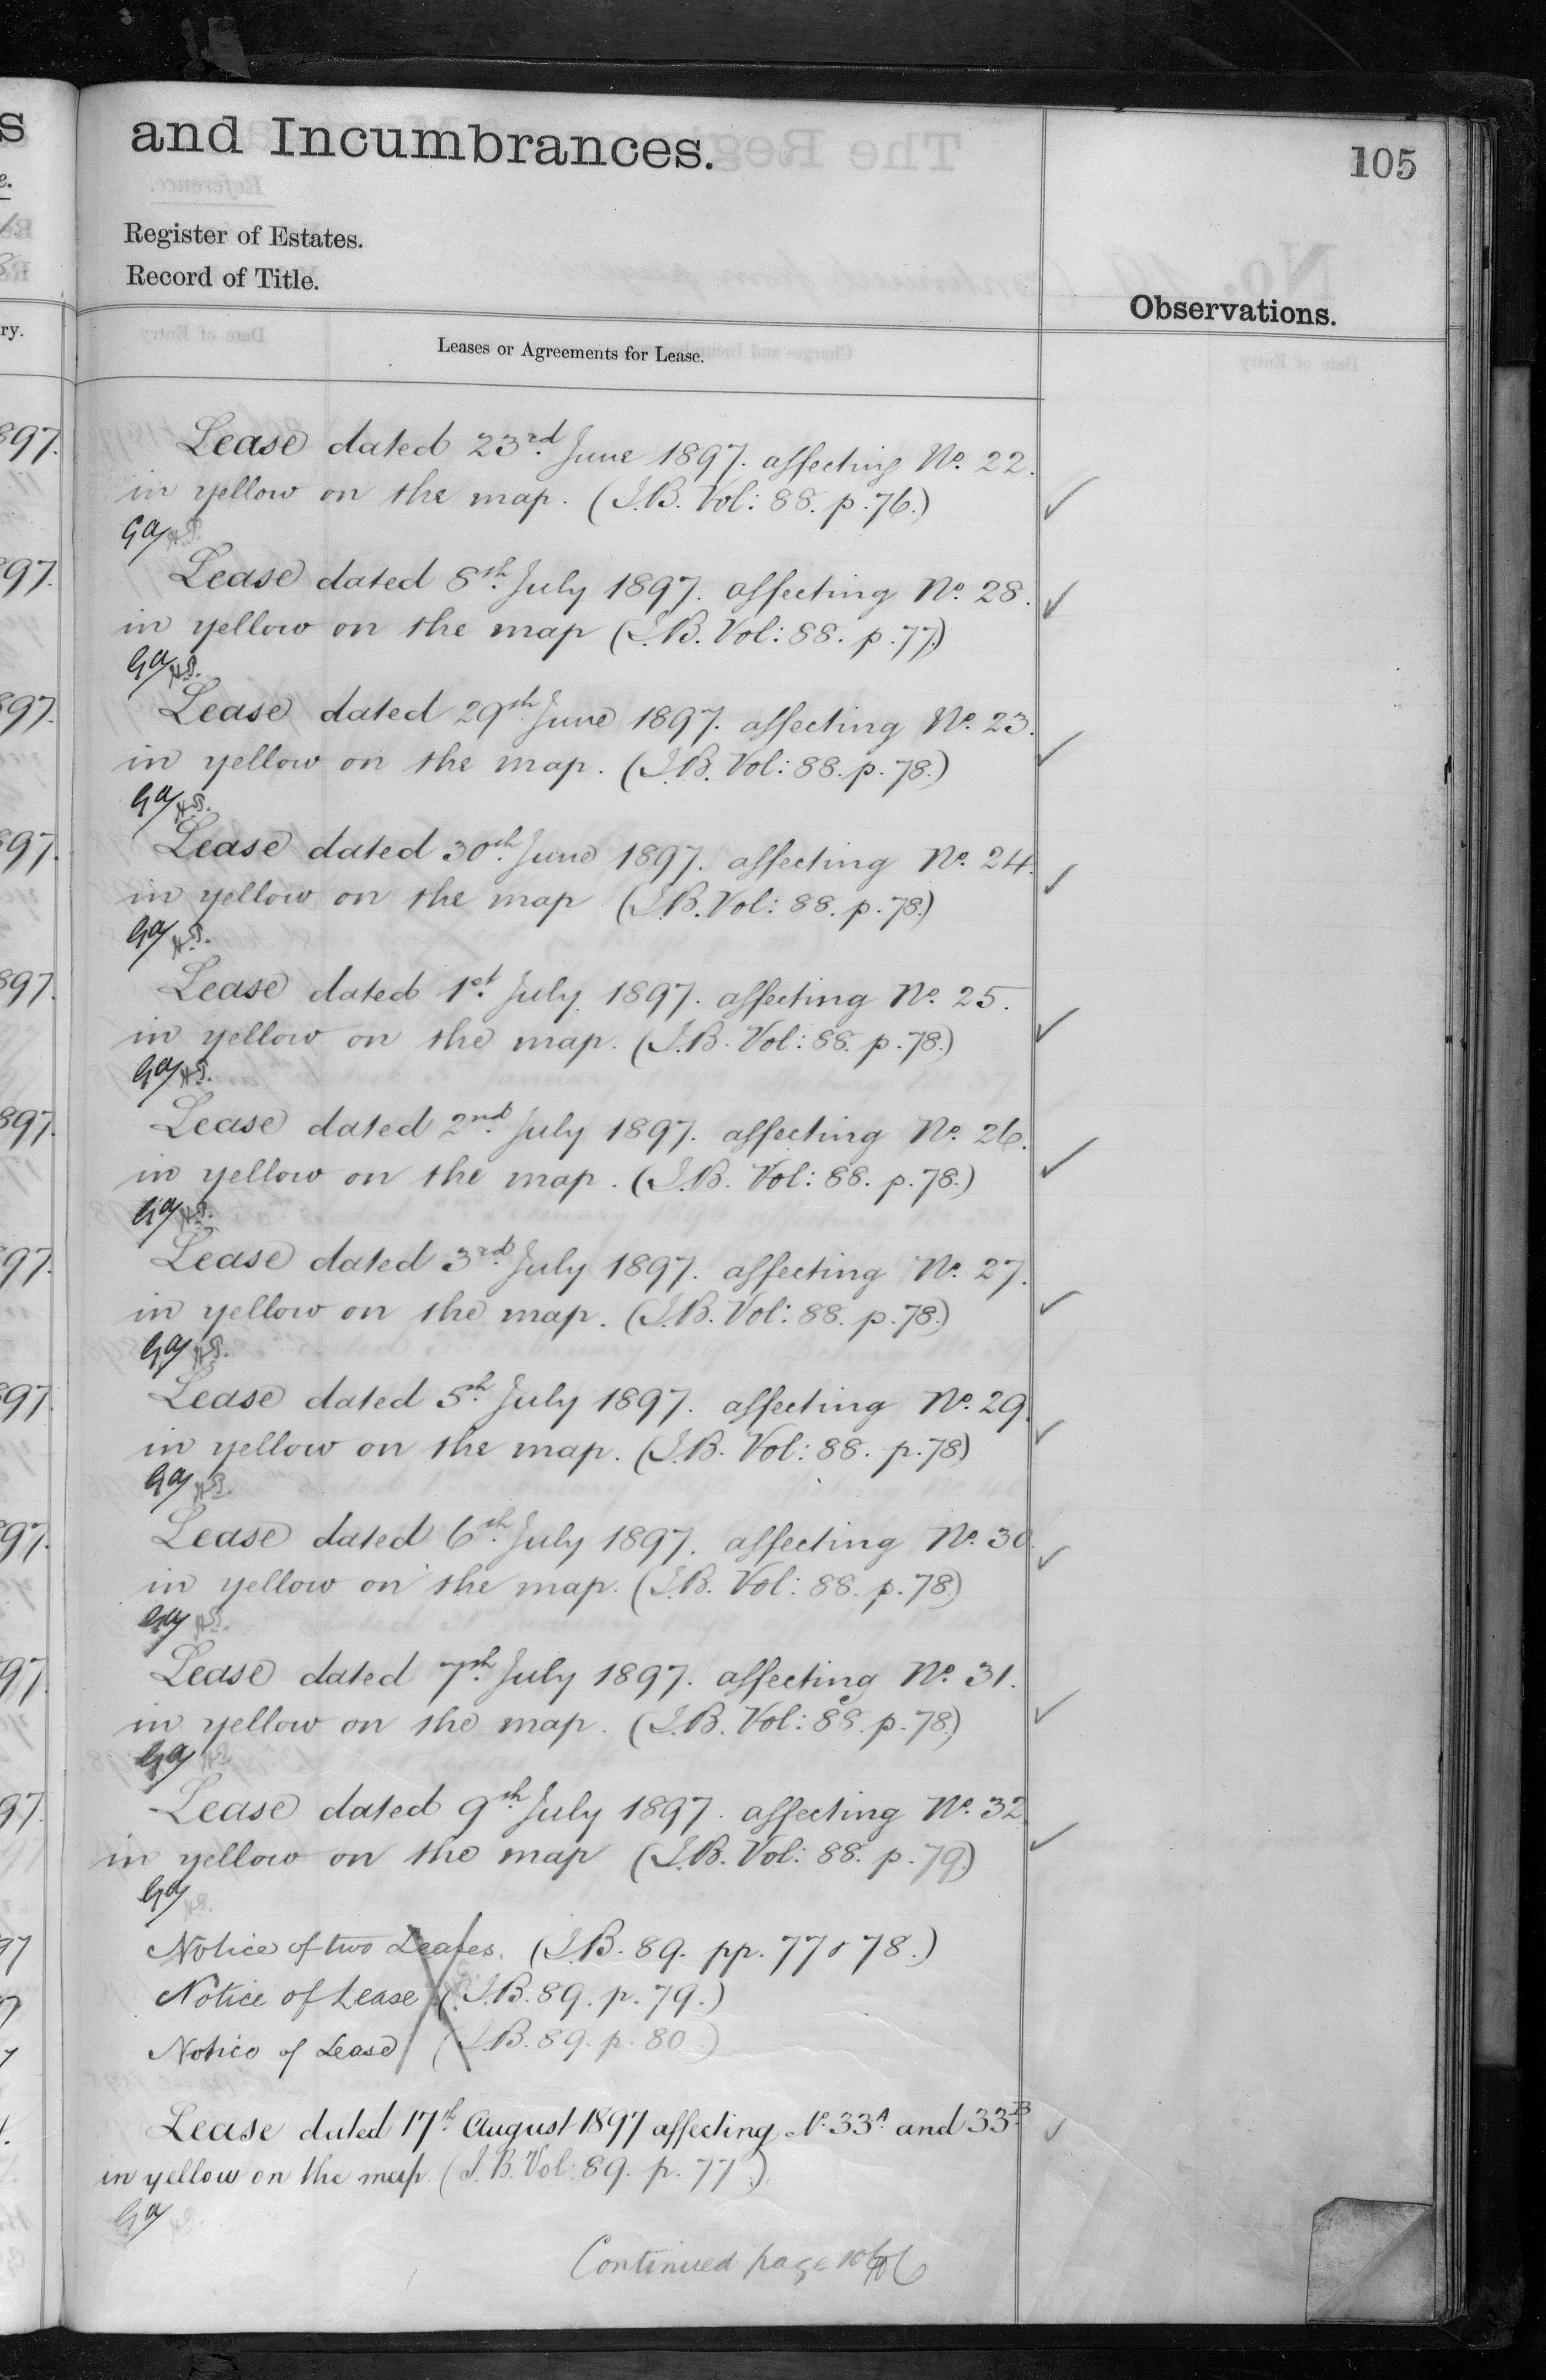 and Incumbrances.
105
Register of Estates.
Record of Title.
Observations.
Leases or Agreements for Lease.
Lease dated 23rd June 1897. affecting No. 22.
in yellow on the map. (I.B. Vol: 88. p. 76.)
Lease dated 8th July 1897. affecting No. 28.
in yellow on the map (I.B. Vol: 88. p. 77.)
Lease dated 29th June 1897. affecting No. 23.
in yellow on the map. (I.B. Vol: 88. p. 78.)
Lease dated 30th June 1897. affecting No. 24.
in yellow on the map (I.B. Vol: 88. p. 78.)
Lease dated 1st July 1897. affecting No. 25.
in yellow on the map. (I.B. Vol: 88. p. 78.)
Lease dated 2nd July 1897. affecting No. 26.
in yellow on the map. (I.B. Vol: 88. p. 78.)
Lease dated 3rd July 1897. affecting No. 27.
in yellow on the map. (I.B. Vol: 88. p. 78.)
Lease dated 5th July 1897. affecting No. 29.
in yellow on the map. (I.B. Vol: 88. p. 78)
Lease dated 6th July 1897. affecting No. 30.
in yellow on the map. (I.B. Vol: 88. p. 78.)
Lease dated 7th July 1897. affecting No. 31.
in yellow on the map. (I.B. Vol: 88. p. 78.)
Lease dated 9th July 1897. affecting No. 32
in yellow on the map (I.B. Vol: 88. p. 79.)
Notice of two Leases. (I.B. 89. pp. 77 & 78.)
Notice of Lease (I.B. 89. p. 79.)
Notice of Lease (I.B. 89. p. 80.)
Lease dated 17th August 1897 affecting No. 33A and 33B
in yellow on the map. (I.B. Vol: 89. p. 77.)
Continued page 106